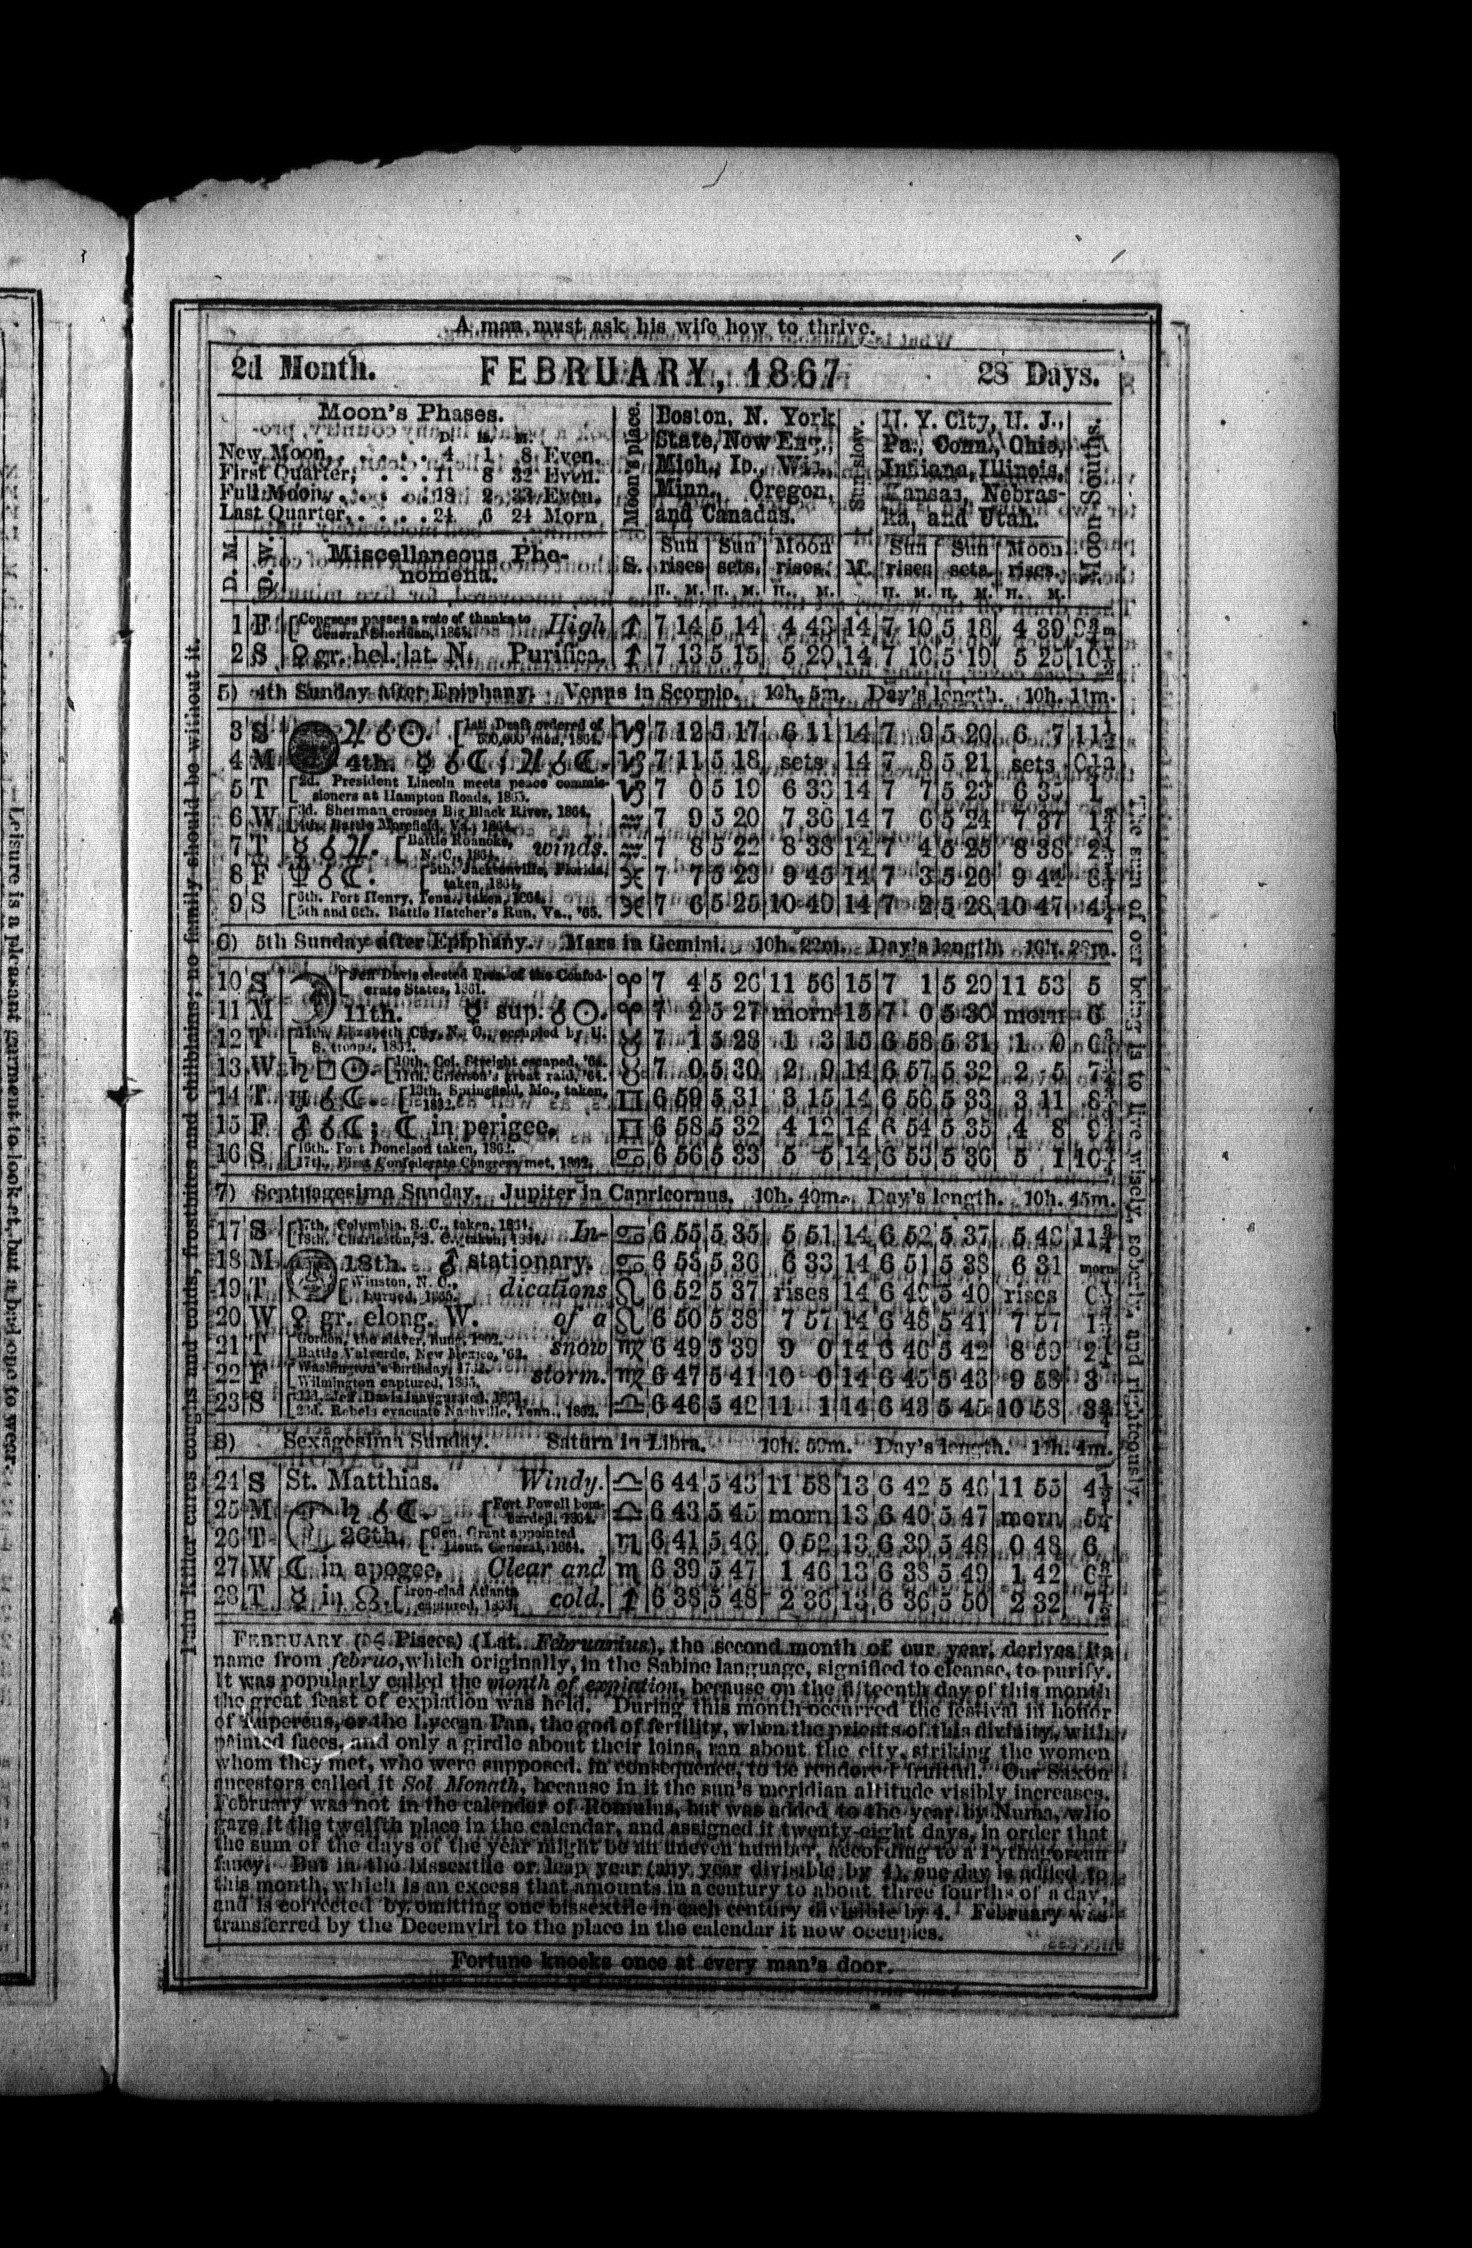 A man must ask his wife how to thrive.
2d Month. FEBRUARY, 1867 28 Days.
Moon's Phases.
D. H. M.
New Moon, . . . . . 4 1 8 Even.
First Quarter, . . . 11 8 32 Even.
Full Moon, . . . . 18 2 33 Even.
Last Quarter, . . . . 24 6 24 Morn
Moon's place.
Boston, N. York
State, New Eng.,
Mich., Io., Wis.,
Minn., Oregon,
and Canadas.
Sun slow.
N. Y. City, N. J.,
Pa., Conn., Ohio,
Indiana, Illinois,
Kansas, Nebras-
ka, and Utah.
Moon Souths.
D. M. D. W. Miscellaneous Phe-
nomena.
S. Sun rises Sun sets. Moon rises. M. Sun rises Sun sets. Moon rises.
H. M. H. M. H. M. H. M. H. M. H. M.
1 F [Congress passes a vote of thanks to General Sheridan, 1865. High ♐ 7 14 5 14 4 43 14 7 10 5 18 4 39
2 S ♀ gr. hel. lat. N. Purifica. ♐ 7 13 5 15 5 29 14 7 10 5 19 5 25 10½
5) 4th Sunday after Epiphany. Venus in Scorpio. 10h. 5m. Day's length. 10h. 11m.
3 S ♃ ☌ ☉. [1st. Draft ordered of 500,000 men, 1864. ♑ 7 12 5 17 6 11 14 7 9 5 20 6 7 11½
4 M 4th. ☿ ☌ ☾; ♃ ☌ ☾. ♑ 7 11 5 18 sets 14 7 8 5 21 sets
5 T [2d. President Lincoln meets peace commissioners at Hampton Roads, 1865. ♑ 7 0 5 19 6 33 14 7 7 5 23 6 35 1
6 W [3d. Sherman crosses Big Black River, 1864. 4th. Battle Morefield, Va., 1864. ♒ 7 9 5 20 7 36 14 7 6 5 24 7 37
7 T ☿ ☌ ♃. [Battle Roanoke, N. C., 1864. winds. ♒ 7 8 5 22 8 38 14 7 4 5 25 8 38
8 F ♆ ☌ ☾. [5th. Jacksonville, Florida, taken, 1864. ♓ 7 7 5 23 9 45 14 7 3 5 26 9 44
9 S [6th. Fort Henry, Tenn., taken, 1864. 5th and 6th. Battle Hatcher's Run, Va., '65. ♓ 7 6 5 25 10 49 14 7 2 5 28 10 47 4¼
6) 5th Sunday after Epiphany. Mars in Gemini. 10h. 22m. Day's length. 10h. 28m.
10 S [Jeff Davis elected Pres. of the Confederate States, 1861. ♈ 7 4 5 26 11 56 15 7 1 5 29 11 53 5
11 M 11th. ☿ sup. ☌ ☉. ♈ 7 2 5 27 morn 15 7 0 5 30 morn 6
12 T [11th. Elizabeth City, N. C., occupied by U. S. troops, 1862. ♉ 7 1 5 28 1 3 15 6 58 5 31 1 0 6¾
13 W ♄ □ ☉. [10th. Col. Streight escaped, '64. 11th. Grierson's great raid, '64. ♉ 7 0 5 30 2 9 14 6 57 5 32 2 5 7¾
14 T ♅ ☌ ☾. [13th. Springfield, Mo., taken, 1862. ♊ 6 59 5 31 3 15 14 6 56 5 33 3 11 8¾
15 F ♂ ☌ ☾; ☾ in perigee. ♊ 6 58 5 32 4 12 14 6 54 5 35 4 8
16 S [16th. Fort Donelson taken, 1862. 17th. First Confederate Congress met, 1862. ♋ 6 56 5 33 5 5 14 6 53 5 36 5 1
7) Septuagesima Sunday. Jupiter in Capricornus. 10h. 40m. Day's length. 10h. 45m.
17 S [17th. Columbia, S. C., taken, 1864. 18th. Charleston, S. C., taken, 1864. In- ♋ 6 55 5 35 5 51 14 6 52 5 37 5 48 11¾
18 M 18th. ♂ stationary. ♋ 6 53 5 36 6 33 14 6 51 5 38 6 31 morn
19 T [Winston, N. C., burned, 1865. dications ♌ 6 52 5 37 rises 14 6 49 5 40 rises
20 W ♀ gr. elong. W. of a ♌ 6 50 5 38 7 57 14 6 48 5 41 7 57
21 T [Gordon, the slaver, hung, 1862. Battle Valverde, New Mexico, '62. snow ♍ 6 49 5 39 9 0 14 6 46 5 42 8 59 2¼
22 F [Washington's birthday, 1732. Wilmington captured, 1865. storm. ♍ 6 47 5 41 10 0 14 6 45 5 43 9 58 3
23 S [22d. Jeff Davis inaugurated, 1862. 23d. Rebels evacuate Nashville, Tenn., 1862. ♎ 6 46 5 42 11 1 14 6 43 5 45 10 58 3¾
8) Sexagesima Sunday. Saturn in Libra. 10h. 59m. Day's length. 11h. 4m.
24 S St. Matthias. Windy. ♎ 6 44 5 43 11 58 13 6 42 5 46 11 55 4½
25 M ♄ ☌ ☾. [Fort Powell bombarded, 1864. ♎ 6 43 5 45 morn 13 6 40 5 47 morn 5¼
26 T 26th. [Gen. Grant appointed Lieut. General, 1864. ♏ 6 41 5 46 0 52 13 6 39 5 48 0 48 6
27 W ☾ in apogee. Clear and ♏ 6 39 5 47 1 46 13 6 38 5 49 1 42 6¾
28 T ☿ in ☊. [Iron-clad Atlanta captured, 1863. cold. ♐ 6 38 5 48 2 36 13 6 36 5 50 2 32 7½
FEBRUARY (♓ Pisces) (Lat. Februarius), the second month of our year, derives its
name from februo, which originally, in the Sabine language, signified to cleanse, to purify.
It was popularly called the month of expiation, because on the fifteenth day of this month
the great feast of expiation was held. During this month occurred the festival in honor
of Lupercus, or the Lycean Pan, the god of fertility, when the priests of this divinity, with
painted faces, and only a girdle about their loins, ran about the city, striking the women
whom they met, who were supposed, in consequence, to be rendered fruitful. Our Saxon
ancestors called it Sol Monath, because in it the sun's meridian altitude visibly increases.
February was not in the calendar of Romulus, but was added to the year by Numa, who
gave it the twelfth place in the calendar, and assigned it twenty-eight days, in order that
the sum of the days of the year might be an uneven number, according to a Pythagorean
fancy. But in the bissextile or leap year (any year divisible by 4), one day is added to
this month, which is an excess that amounts in a century to about three fourths of a day,
and is corrected by omitting one bissextile in each century divisible by 4. February was
transferred by the Decemviri to the place in the calendar it now occupies.
Fortune knocks once at every man's door.
Pain Killer cures coughs and colds, frostbites and chilblains; no family should be without it.
The sum of our being is to live wisely, soberly, and righteously.
—Leisure is a pleasant garment to look at, but a bad one to wear.